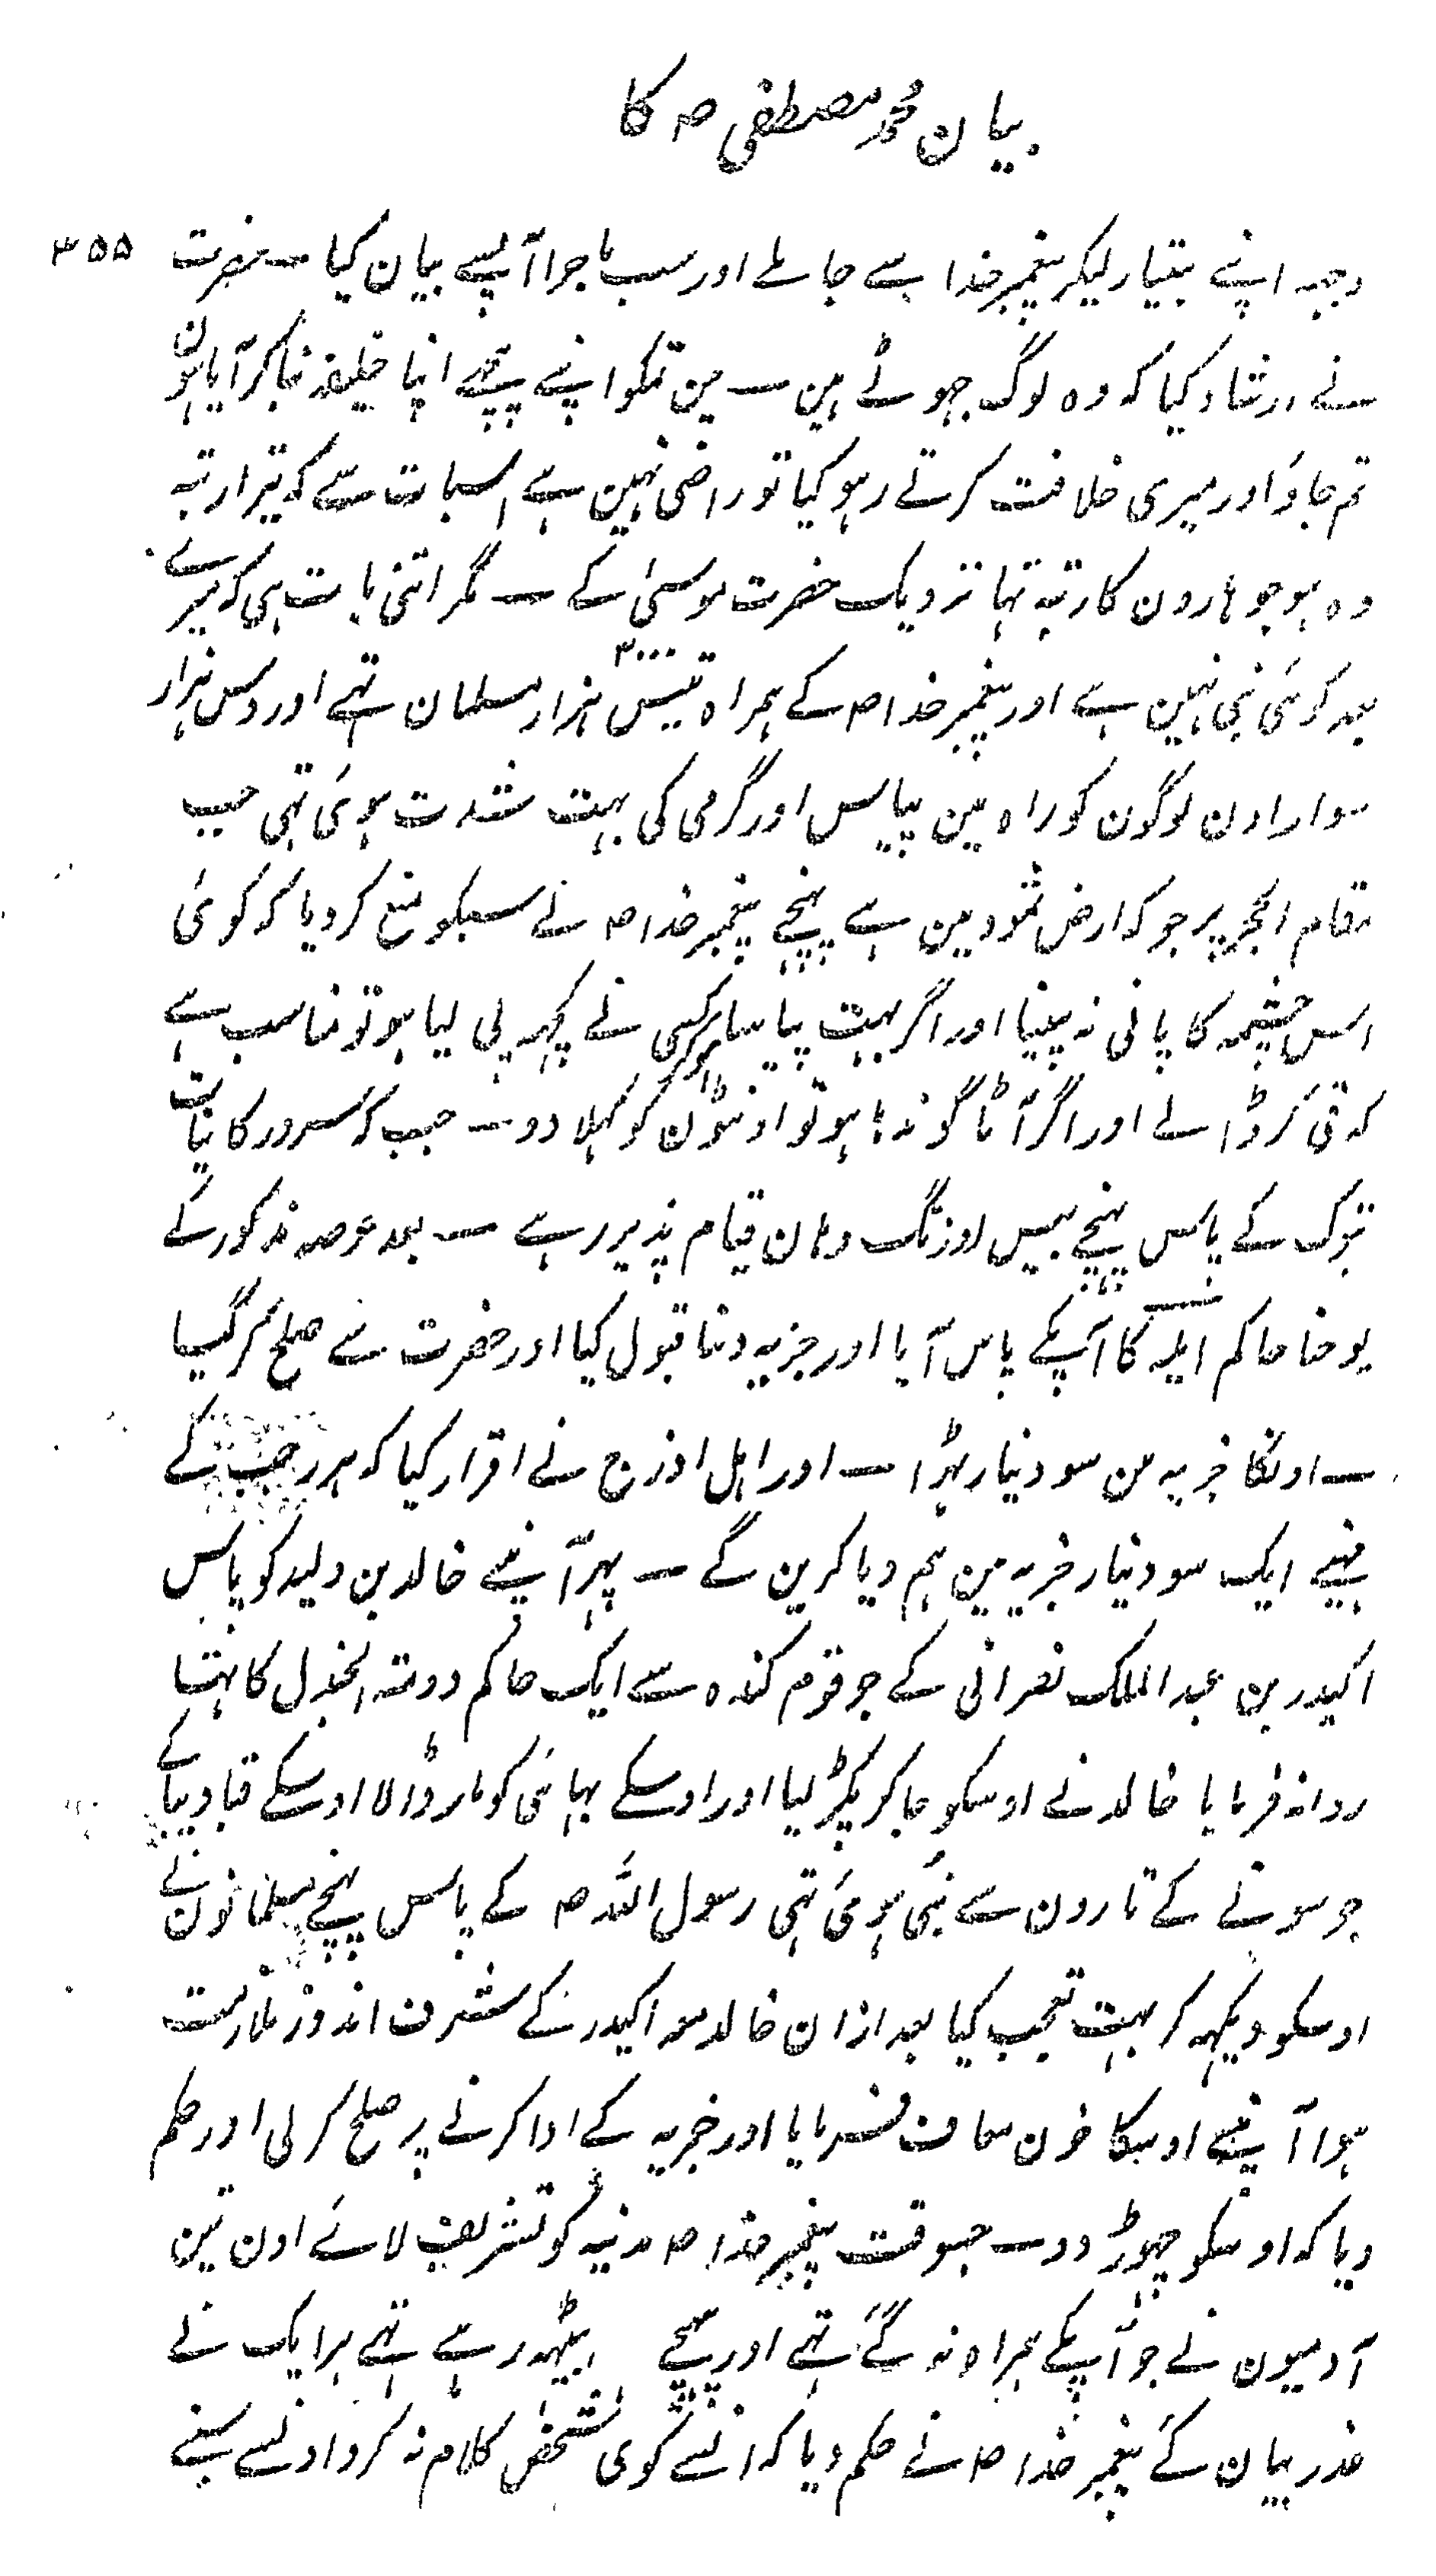 بیان محمد مصطفی ص کا
۳۵۵
وجہہ اپنے ہتیار لیکر پیغمبر خدا سے جا ملے اور سب ماجرا آپسے بیان کیا ۔ حضرت
نے ارشاد کیا کہ وہ لوگ جہوٹے ہین ۔ مین تمکو اپنے پیچہے اپنا خلیفہ بنا کر آیا ہون
تم جاؤ اور میری خلافت کرتے رہو کیا تو راضی نہین ہے اسبات سے کہ تیرا رتبہ
وہ ہو جو ہارون کا رتبہ تہا نزدیک حضرت موسیٰ کے ۔ مگر اتنی بات ہی کہ میرے
بعد کوئی نبی نہین ہے اور پیغمبر خدا ص کے ہمراہ تیس ہزار مسلمان تہے اور دس ہزار
۳۰۰۰
سوار اون لوگون کو راہ مین پیاس اور گرمی کی بہت شدت ہوئی تہی جب
مقام الحجر پر جو کہ ارض ثمود مین ہے پہنچے پیغمبر خدا ص نے سبکو منع کر دیا کہ کوئی
اس چشمہ کا پانی نہ پینا اور اگر بہت پیاسا ہوکر کسی نے کچہہ پی لیا ہو تو مناسب ہے
کہ قی کر ڈالے اور اگر آٹا گوندہا ہو تو اونٹون کو کہلا دو ۔ جب کہ سرور کائنات
تبوک کے پاس پہنچے بیس روز تک وہان قیام پذیر رہے ۔ بعد عرصہ مذکور کے
یوحنا حاکم ایلہ کا آپکے پاس آیا اور جزیہ دینا قبول کیا اور حضرت سے صلح کر گیا
۔ اونکا جزیہ من سو دینار ٹہرا ۔ اور اہل اذرح نے اقرار کیا کہ ہر رجب کے
مہینے ایک سو دینار جزیہ مین ہم دیا کرین گے ۔ پہر آپنے خالد بن ولید کو پاس
اکیدر بن عبد الملک نصرانی کے جو قوم کندہ سے ایک حاکم دومتہ الجندل کا تہا
روانہ فرمایا خالد نے اوسکو جا کر پکڑ لیا اور اوسکے بہائی کو مار ڈالا اوسکے قبا دیبا کے
جو سونے کے تارون سے بنی ہوئی تہی رسول اللہ ص کے پاس پہنچے مسلمانون نے
اوسکو دیکہہ کر بہت تعجب کیا بعد ازان خالد معہ اکیدر کے شرف اندوز ملازمت
ہوا آپنے اوسکا خون معاف فرمایا اور جزیہ کے ادا کرنے پر صلح کر لی اور حکم
دیا کہ اوسکو چہوڑ دو ۔ جسوقت پیغمبر خدا ص مدینہ کو تشریف لائے اون تین
آدمیون نے جو آپکے ہمراہ نہ گئے تہے اور پیچہے بیٹہہ رہے تہے ہر ایک نے
عذر بیان کئے پیغمبر خدا ص نے حکم دیا کہ انسے کوئی شخص کلام نہ کرو اونسے سبنے